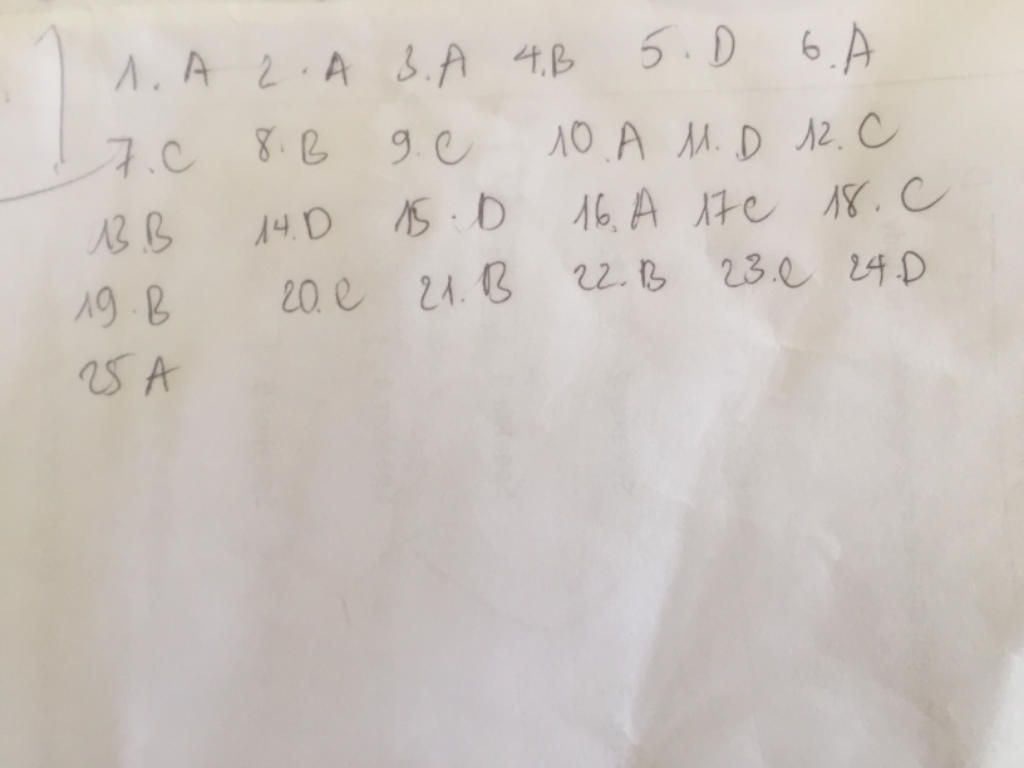 1. A 2. A 3. A 4. B 5. D 6. A
7. C 8. B 9. C 10. A 11. D 12. C
13. B 14. D 15. D 16. A 17 C 18. C
19. B 20. C 21. B 22. B 23. C 24. D
25 A